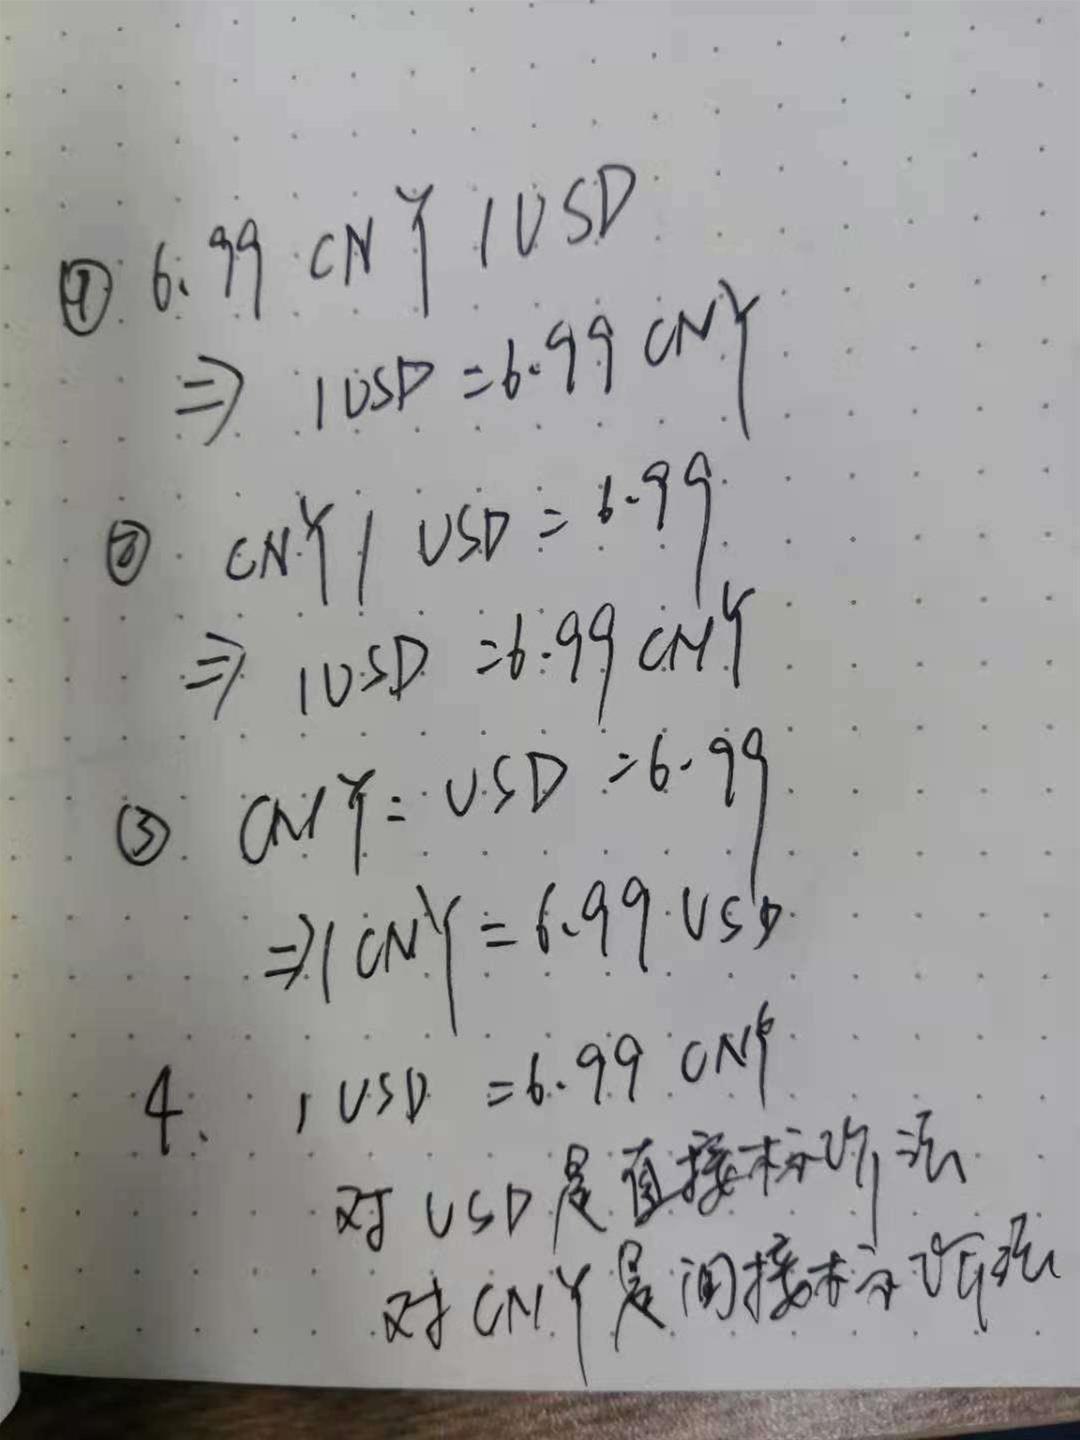 ① 6.99 CNY / USD
⇒ 1 USD = 6.99 CNY
② CNY / USD = 6.99
⇒ 1 USD = 6.99 CNY
③ CNY = USD = 6.99
⇒ 1 CNY = 6.99 USD
4. 1 USD = 6.99 CNY
对 USD 是直接标价法
对 CNY 是间接标价法